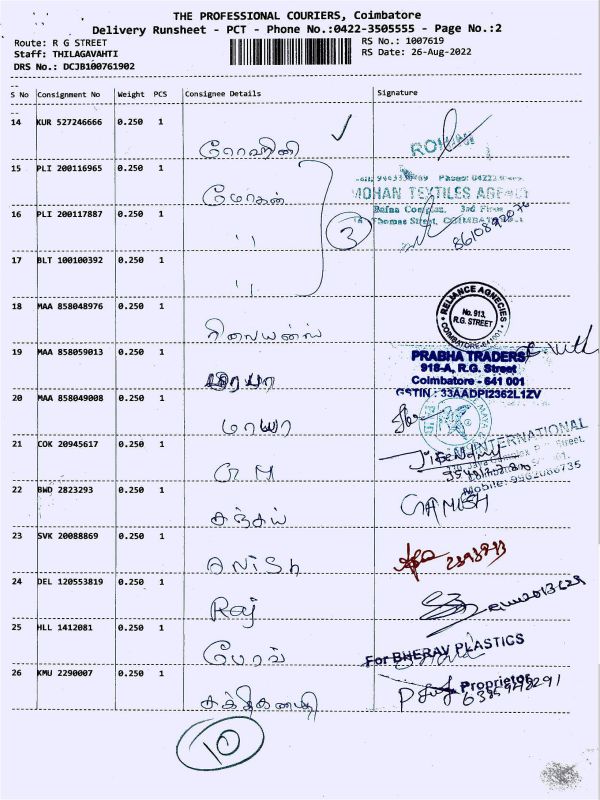 THE PROFESSIONAL COURIERS, Coimbatore
Delivery Runsheet - PCT - Phone No.:0422-3505555 - Page No.:2
Route: R G STREET
RS No.: 1007619
Staff: THILAGAVAHTI
RS Date: 26-Aug-2022
DRS No.: DCJB100761902
S No Consignment No Weight PCS Consignee Details Signature
14 KUR 527246666 0.250 1
ரோஹினி
ROHINI
15 PLI 200116965 0.250 1
மோகன்
MOHAN TEXTILES AGENCY
16 PLI 200117887 0.250 1
"
3
17 BLT 100100392 0.250 1
"
18 MAA 858048976 0.250 1
ரிலையன்ஸ்
RELIANCE AGNECIES
No. 913,
R.G. STREET
COIMBATORE-641001
19 MAA 858059013 0.250 1
PRABHA TRADERS
918-A, R.G. Street
Coimbatore - 641 001
GSTIN : 33AADPI2362L1ZV
20 MAA 858049008 0.250 1
மாயா
21 COK 20945617 0.250 1
GM
INTERNATIONAL
22 BWD 2823293 0.250 1
சஞ்சய்
GAMESH
23 SVK 20088869 0.250 1
ANISh
24 DEL 120553819 0.250 1
Raj
25 HLL 1412081 0.250 1
பேரவ்
For BHERAV PLASTICS
Proprietor
26 KMU 2290007 0.250 1
சக்திகணபதி
10